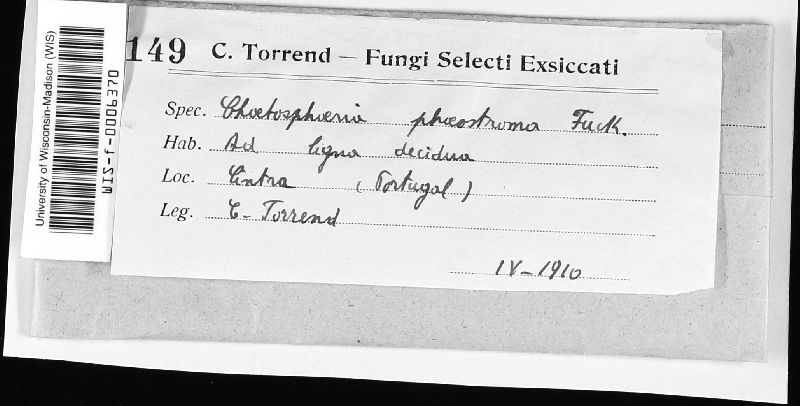 149 C. Torrend – Fungi Selecti Exsiccati
Spec. Chaetosphaeria phaeostroma Fuck.
Hab. Ad ligna decidua
Loc. Cintra (Portugal)
Leg. C. Torrend
IV–1910
University of Wisconsin-Madison (WIS)
WIS-f-0006320